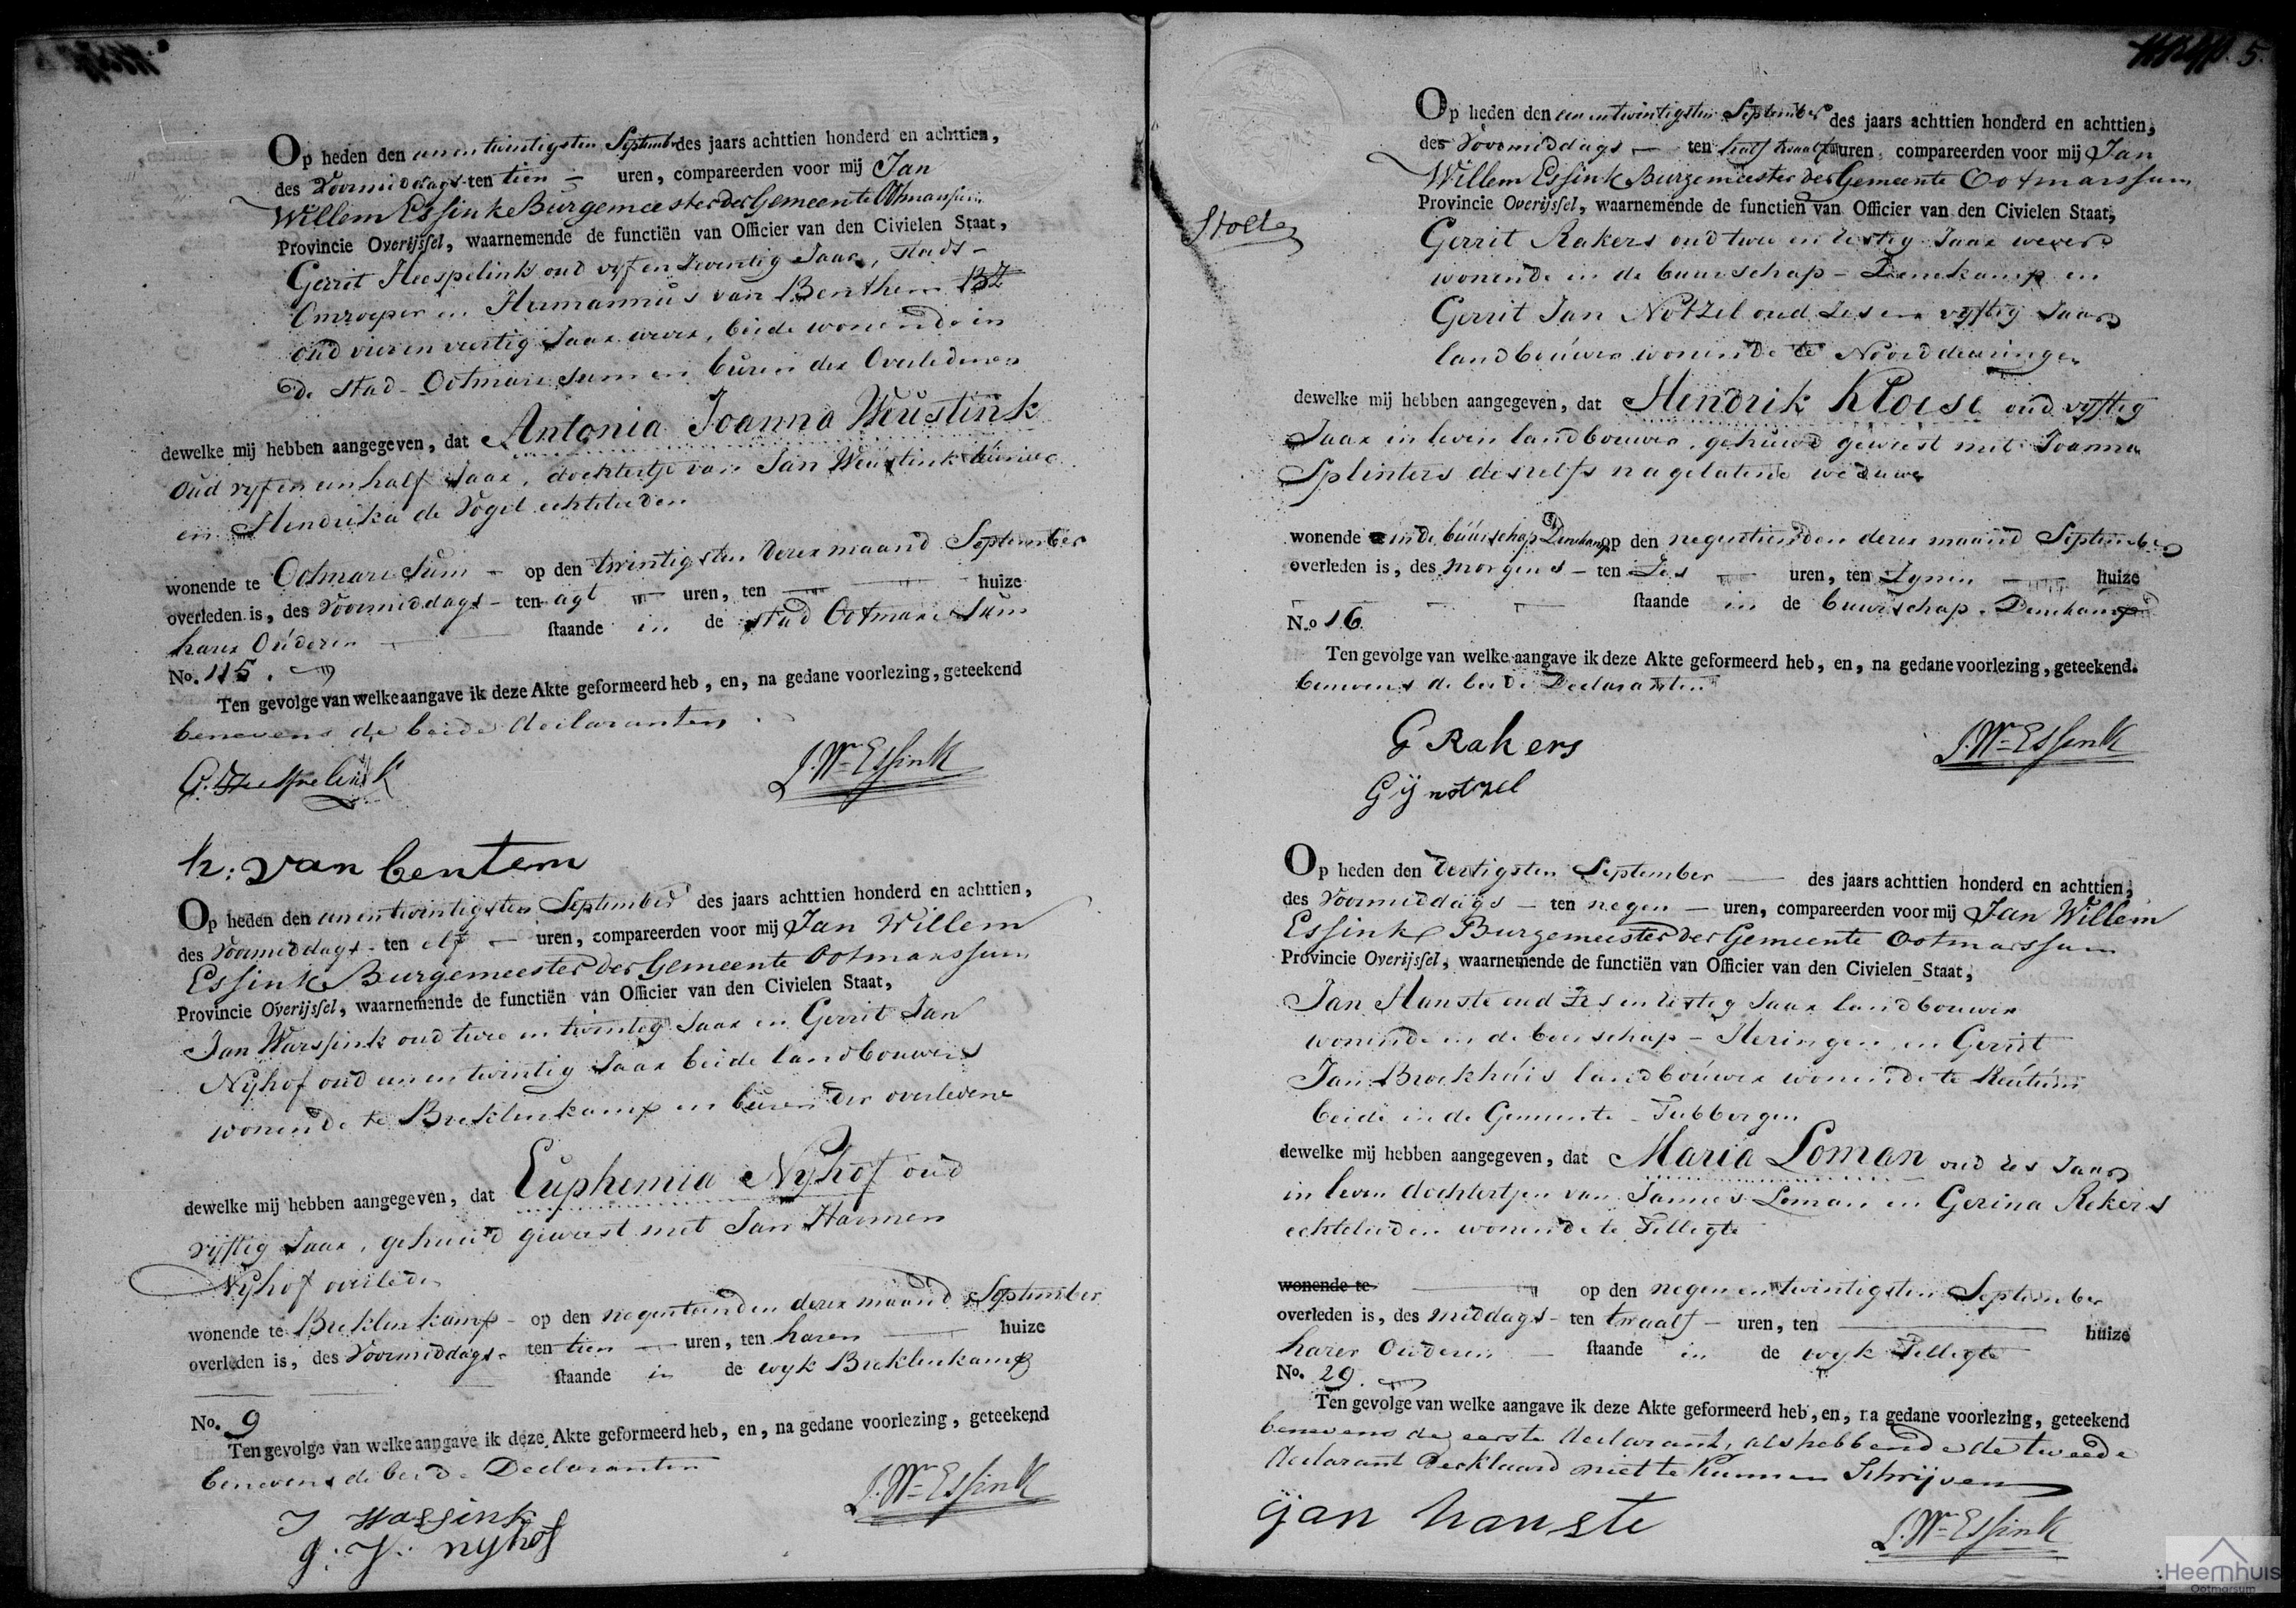 Op heden den een en twintigsten September des jaars achttien honderd en achttien,
des Voormiddags ten tien uren, compareerden voor mij Jan
Willem Essink Burgemeester der Gemeente Ootmarssum
Provincie Overijssel, waarnemende de functiën van Officier van den Civielen Staat,
Gerrit Heespelink oud vyf en twintig Jaar, stads-
Omroeper en Hermannus van Benthem
oud vier en veertig Jaar wever, beide wonende in
de stad Ootmarssum en buren der Overledenen
dewelke mij hebben aangegeven, dat Antonia Joanna Weustink
Oud vyf en een half Jaar, dochtertje van Jan Weustink
en Hendrika de Vogel echtelieden
wonende te Ootmarssum op den twintigsten dezer maand September
overleden is, des Voormiddags ten agt uren, ten huize
harer Ouderen staande in de stad Ootmarssum
No. 115.
Ten gevolge van welke aangave ik deze Akte geformeerd heb, en, na gedane voorlezing, geteekend
benevens de beide declaranten
G. Heespelink J. Wm Essink
h: van bentem
Op heden den een en twintigsten September des jaars achttien honderd en achttien,
des Voormiddags ten elf uren, compareerden voor mij Jan Willem
Essink Burgemeester der Gemeente Ootmarssum
Provincie Overijssel, waarnemende de functiën van Officier van den Civielen Staat,
Jan Warssink oud twee en twintig Jaar en Gerrit Jan
Nyhof oud een en twintig Jaar beide landbouwers
wonende te Breklenkamp en buren der overledene
dewelke mij hebben aangegeven, dat Euphemia Nyhof oud
vyftig Jaar, gehuwd geweest met Jan Harmen
Nyhof overleden
wonende te Breklenkamp op den negentienden dezer maand September
overleden is, des Voormiddags ten tien uren, ten haren huize
staande in de wyk Breklenkamp
No. 9
Ten gevolge van welke aangave ik deze Akte geformeerd heb, en, na gedane voorlezing, geteekend
benevens de beide Declaranten
J. Wm Essink
J Wassink
g: J: nyhof
5.
Op heden den een en twintigsten September des jaars achttien honderd en achttien,
des Voormiddags ten half twaalf uren, compareerden voor mij Jan
Willem Essink Burgemeester der Gemeente Ootmarssum
Provincie Overijssel, waarnemende de functiën van Officier van den Civielen Staat,
Stolte
Gerrit Rakers oud twee en zestig Jaar wever
wonende in de buurschap Denekamp en
Gerrit Jan Notzel oud zes en vyftig Jaar
landbouwer wonende te Noorddeuringen
dewelke mij hebben aangegeven, dat Hendrik Kloese oud vyftig
Jaar in leven landbouwer, gehuwd geweest met Joanna
Splinters deszelfs nagelatene weduwe
wonende in de buurschap Denekamp op den negentienden dezer maand September
overleden is, des morgens ten zes uren, ten zynen huize
staande in de buurschap Denekamp
N.o 16
Ten gevolge van welke aangave ik deze Akte geformeerd heb, en, na gedane voorlezing, geteekend.
benevens de beide Declaranten
G Rakers J. Wm Essink
G ij notzel
Op heden den dertigsten September des jaars achttien honderd en achttien,
des Voormiddags ten negen uren, compareerden voor mij Jan Willem
Essink Burgemeester der Gemeente Ootmarssum
Provincie Overijssel, waarnemende de functiën van Officier van den Civielen Staat,
Jan Hanste oud zes en zestig Jaar landbouwer
wonende in de boerschap Heringen en Gerrit
Jan Broekhuis landbouwer wonende te Reutum
beide in de Gemeente Tubbergen
dewelke mij hebben aangegeven, dat Maria Loman oud zes Jaar
in leven dochtertjen van Jannes Loman en Gerina Rekers
echtelieden wonende te Tilligte
wonende te op den negen en twintigsten September
overleden is, des middags ten twaalf uren, ten huize
harer Ouderen staande in de wyk Tilligte
No. 29.
Ten gevolge van welke aangave ik deze Akte geformeerd heb, en, na gedane voorlezing, geteekend
benevens de eerste declarant, als hebbende de tweede
declarant verklaard niet te kunnen Schrijven
Gjan hanste J. Wm Essink
Heemhuis
Ootmarsum